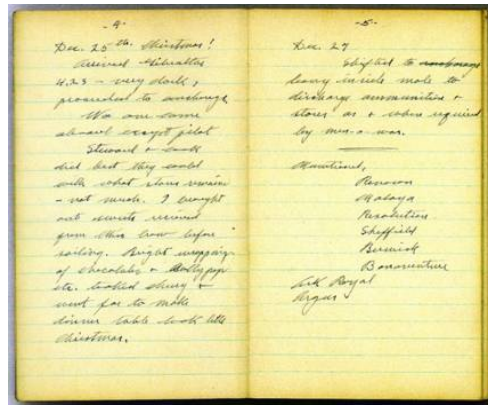 -4-
Dec. 25th. Christmas!
Arrived Gibraltar
4.23 - very dark,
proceeded to anchorage
No one came
aboard except pilot
Steward & cook
did best they could
with what stores remain
- not much. I brought
out sweets received
from this crow before
sailing. Bright wrappings
of chocolates & lollypops
etc. looked cheery &
went far to make
dinner table look like
Christmas.
-5-
Dec. 27
Shifted to anchorage
leaving inside mole to
discharge ammunition &
stores as & when required
by men-o-war.
Renown
Malaya
Resolution
Sheffield
Berwick
Bonaventure
Ark Royal
Argus